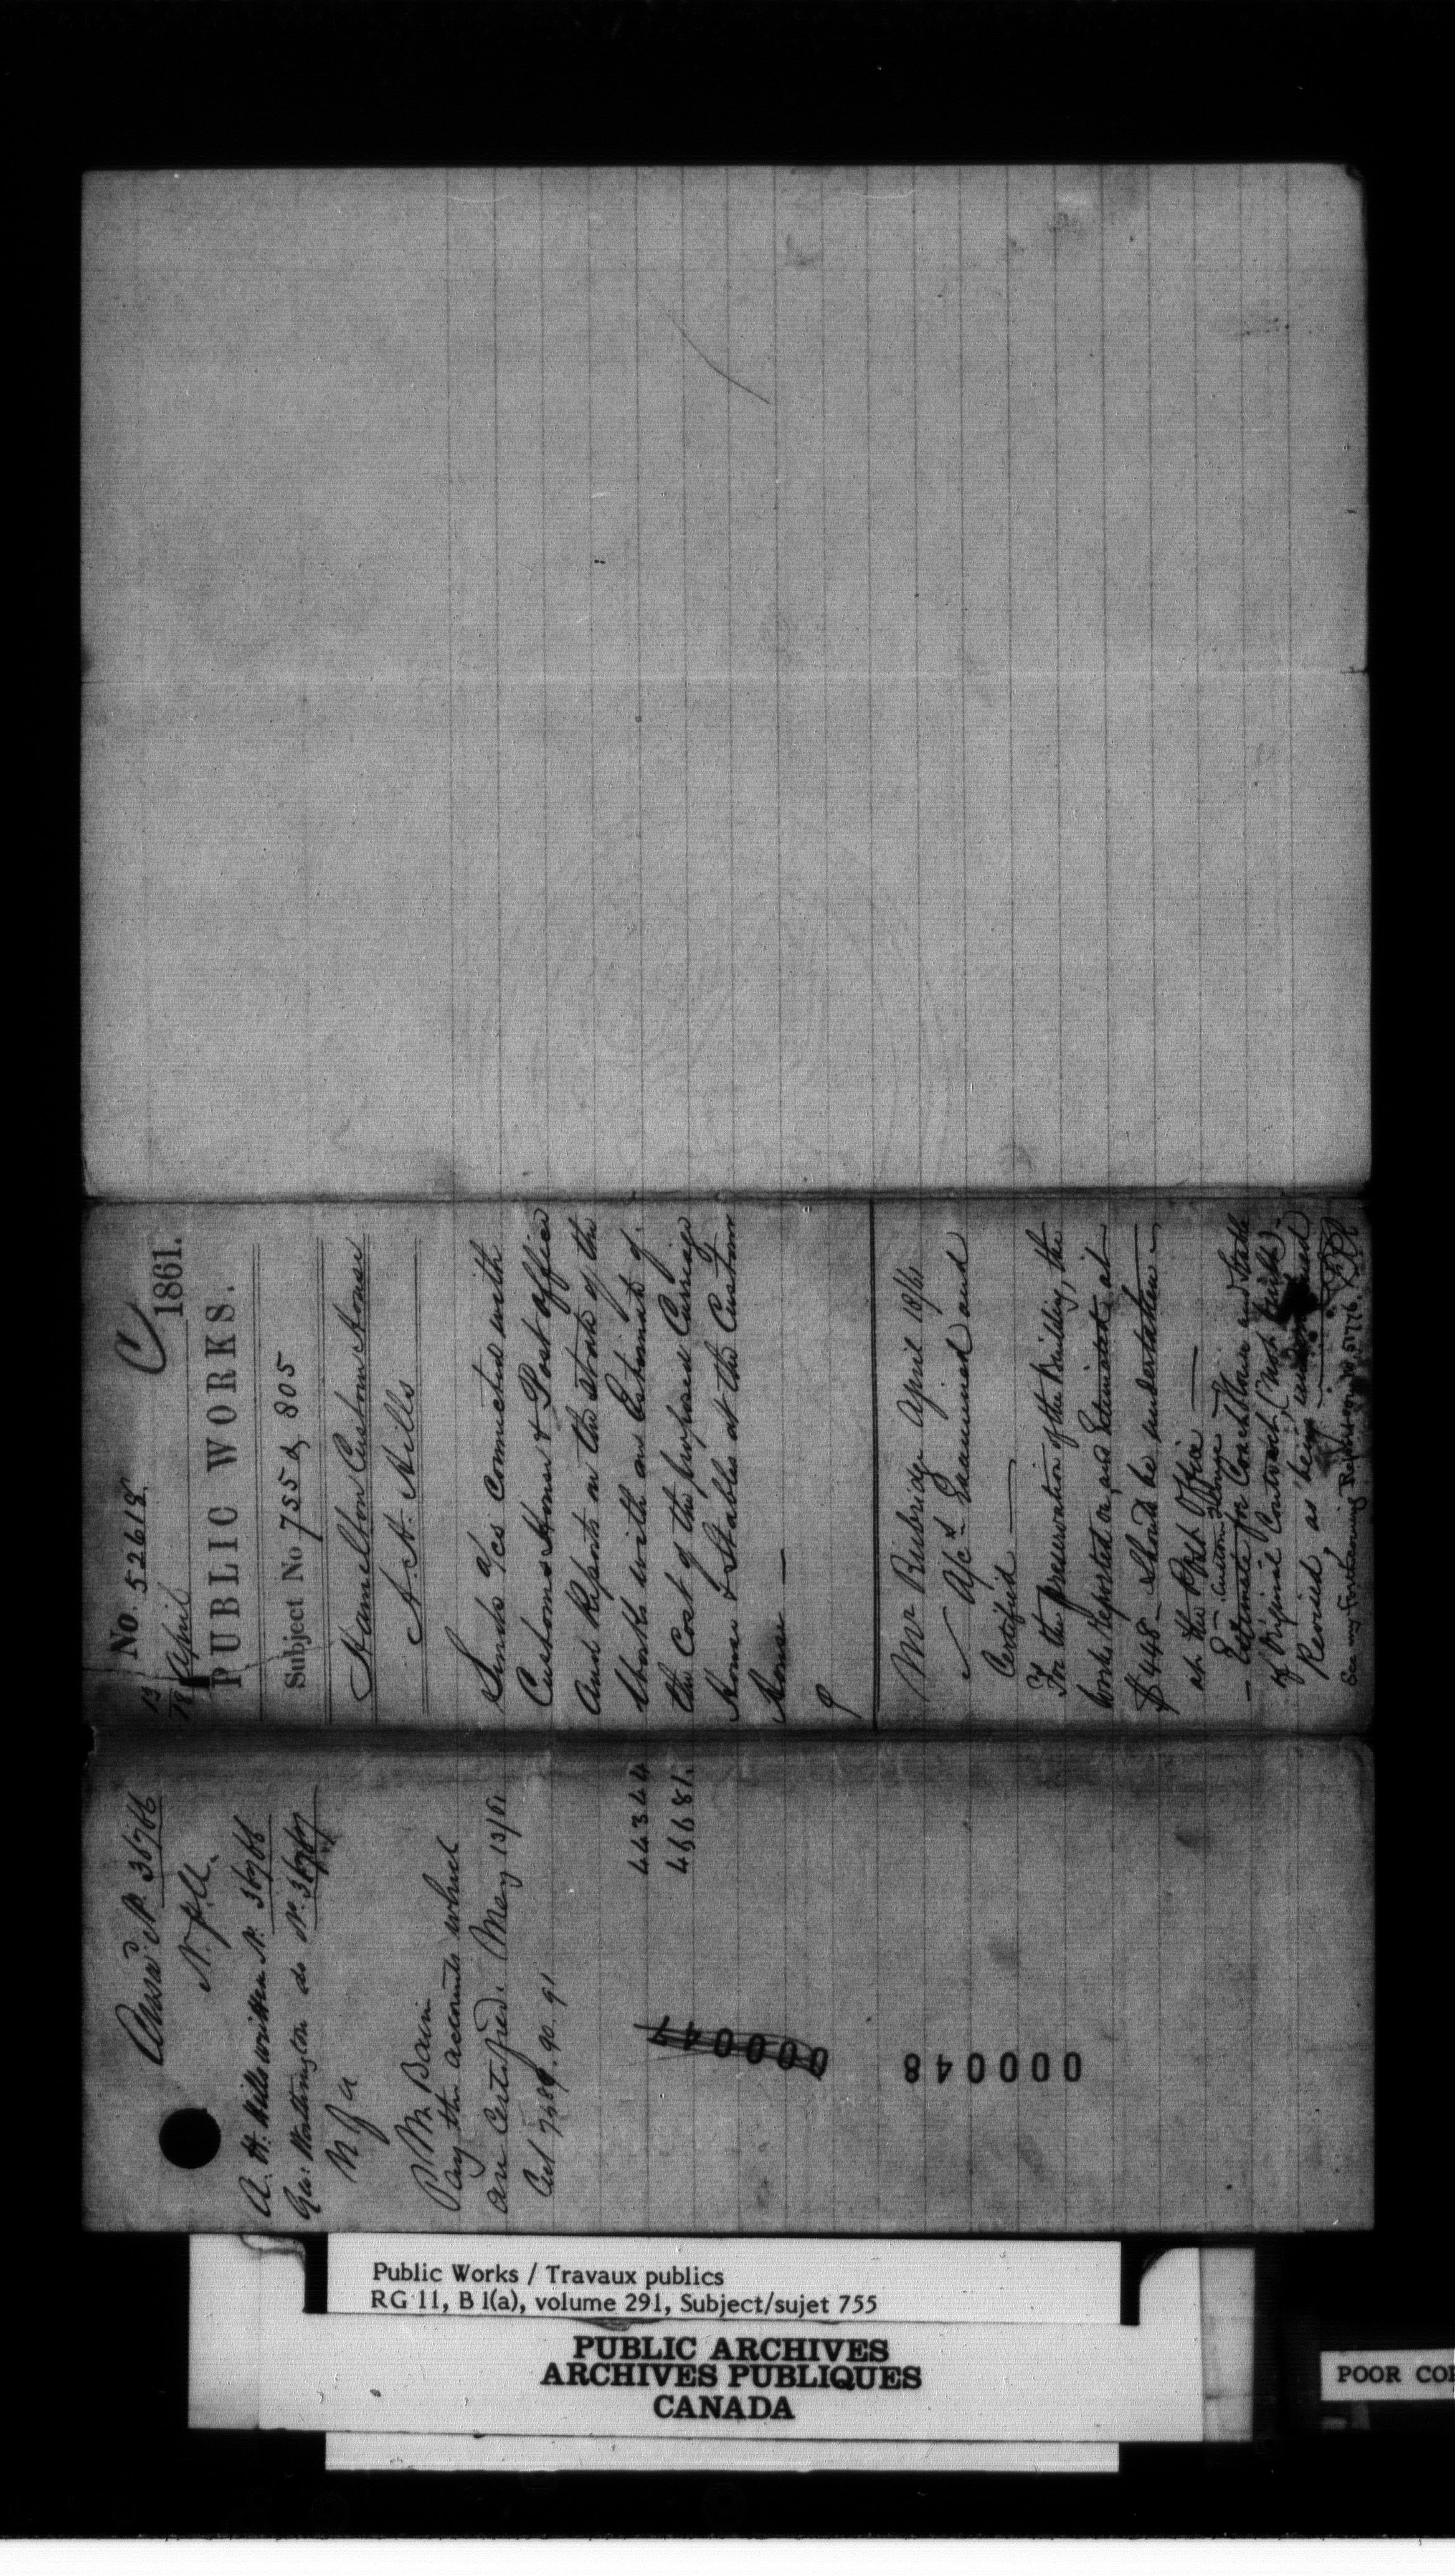 No. 52618
C
13
18 April
1861.
PUBLIC WORKS.
Subject No 755 & 805
Hamilton Custom House
A. H. Hills
Sends a/cs connected with
Customs House & Post Office
and Reports on the state of the
Works with an Estimate of
the Cost of the proposed Carriage
House & Stables at the Custom
House —
Mr Rubidge April 18/61
A/cs Examined and
Certified —
For the preservation of the Building, the
Works Reported on, and Estimated, at
$448 — should be undertaken —
at the Post Office —
Custom House
— Estimate for Coach House and Stable
of Original Contract, (not built)
Revised, as being
See my Forthcoming Report on No 51776.
FPR
Answd No. 36766
A. H. Hills written No. 36766
Geo: Worthington do No. 36767
P. Mr Bain
Pay the accounts which
are Certified. May 13/61
Cert 7489. 90. 91
44344
46681.
000047
000048
Public Works / Travaux publics
RG 11, B 1(a), volume 291, Subject/sujet 755
PUBLIC ARCHIVES
ARCHIVES PUBLIQUES
CANADA
POOR